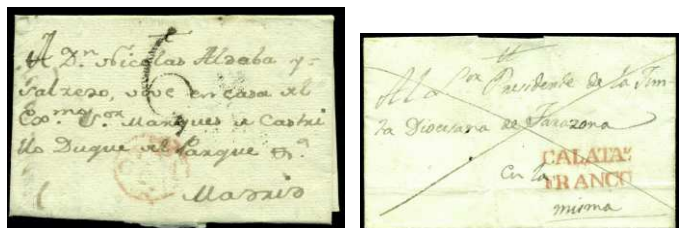 A Dn. Nicolas Aldaba y
Salzedo, vive en casa del
Exmo. Sor. Marques de Castri
llo Duque del Parque
Madrid
6
A la Sra Presidente de la Jun
ta Diocesana de Tarazona
en la
misma
CALATAD
FRANCO